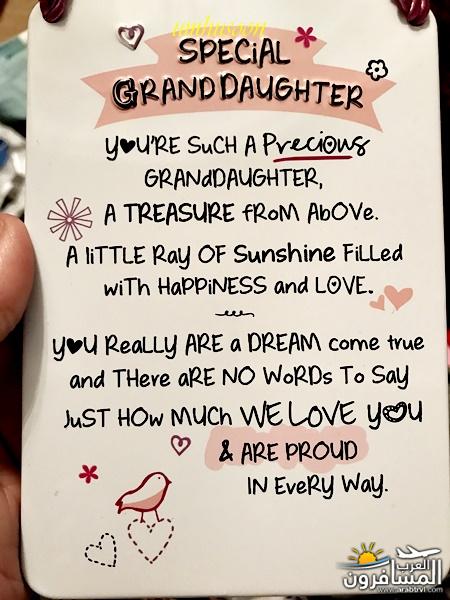 umhusson
SPECIAL
GRANDDAUGHTER
YOU'RE SUCH A Precious
GRANDDAUGHTER,
A TREASURE FROM ABOVE.
A LITTLE RAY OF Sunshine FILLED
WITH HAPPINESS and LOVE.
YOU REALLY ARE a DREAM come true
and THERE ARE NO WORDS TO SAY
JUST HOW MUCH WE LOVE YOU
& ARE PROUD
IN EVERY WAY.
العرب
المسافرون
www.arabtrvl.com